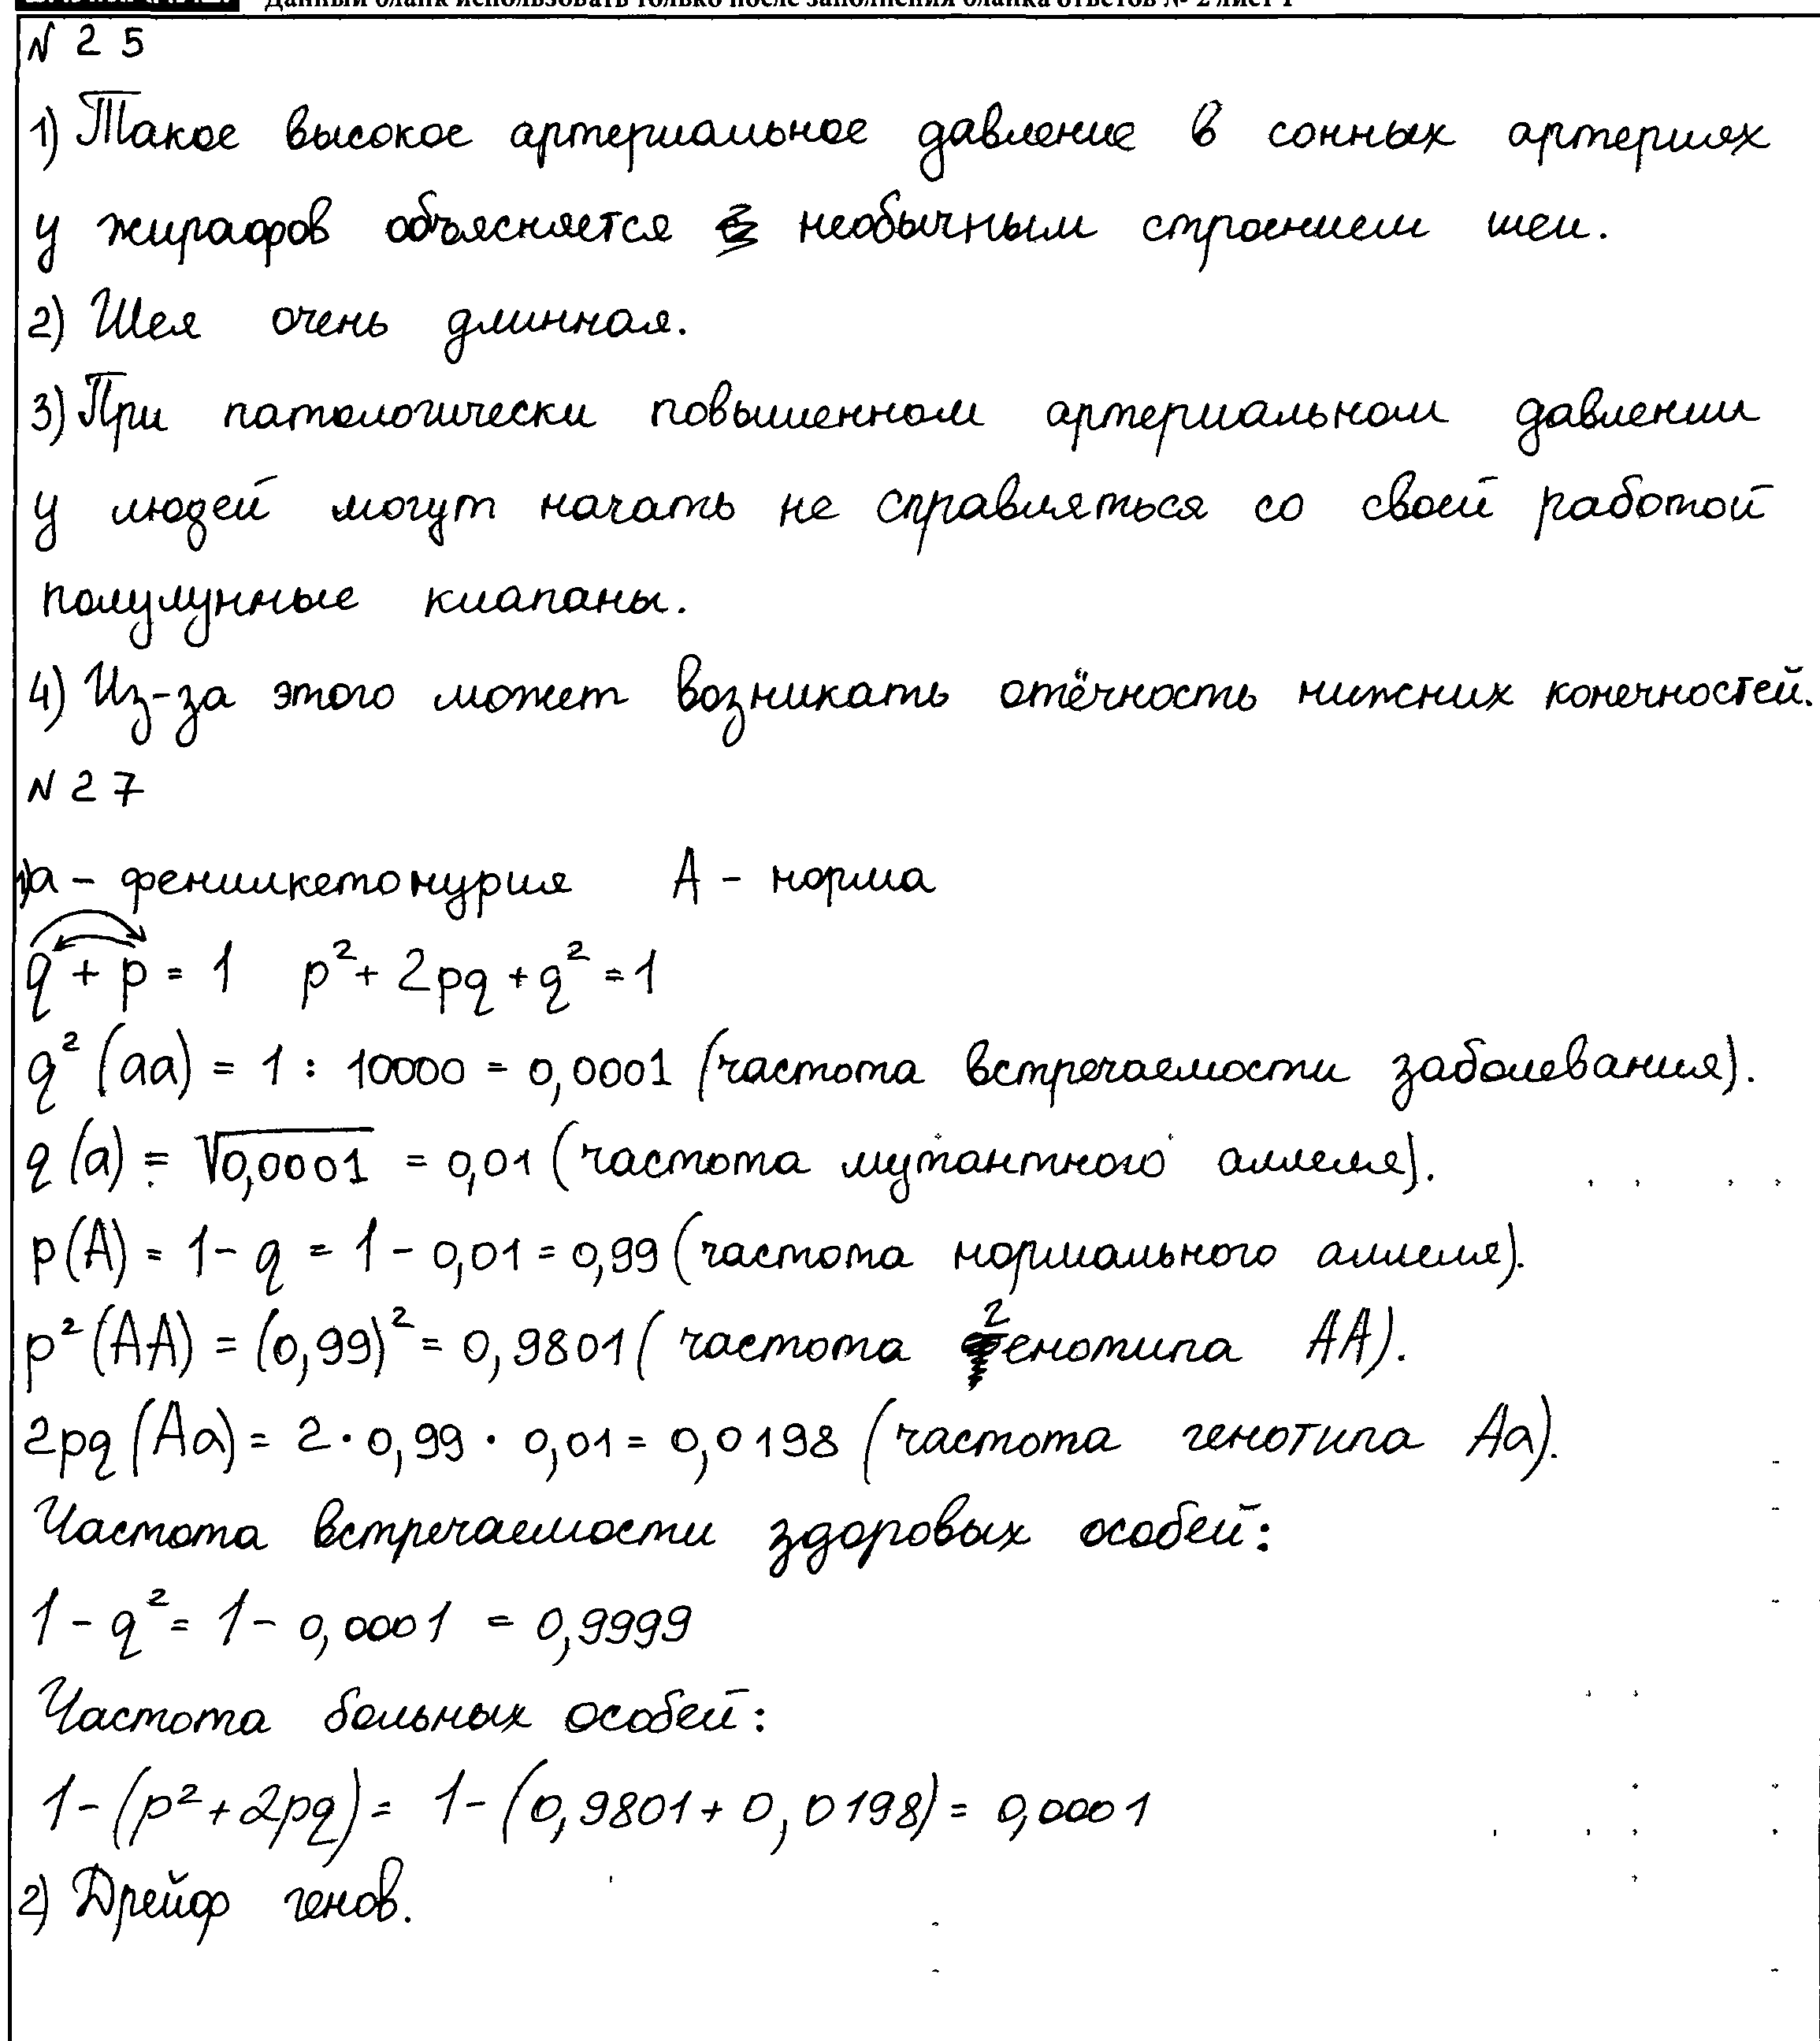 Данный бланк использовать только после заполнения бланка ответов № 2 лист 1
N 25
1) Такое высокое артериальное давление в сонных артериях
у жирафов объясняется необычным строением шеи.
2) Шея очень длинная.
3) При патологически повышенном артериальном давлении
у людей могут начать не справляться со своей работой
полулунные клапаны.
4) Из-за этого может возникать отёчность нижних конечностей.
N 27
1) a - фенилкетонурия A - норма
q + p = 1 p² + 2pq + q² = 1
q² (aa) = 1 : 10000 = 0,0001 (частота встречаемости заболевания).
q (a) = √0,0001 = 0,01 (частота мутантного аллеля).
p(A) = 1 - q = 1 - 0,01 = 0,99 (частота нормального аллеля).
p² (AA) = (0,99)² = 0,9801 (частота генотипа AA).
2pq (Aa) = 2 · 0,99 · 0,01 = 0,0198 (частота генотипа Aa).
Частота встречаемости здоровых особей:
1 - q² = 1 - 0,0001 = 0,9999
Частота больных особей:
1 - (p² + 2pq) = 1 - (0,9801 + 0,0198) = 0,0001
2) Дрейф генов.